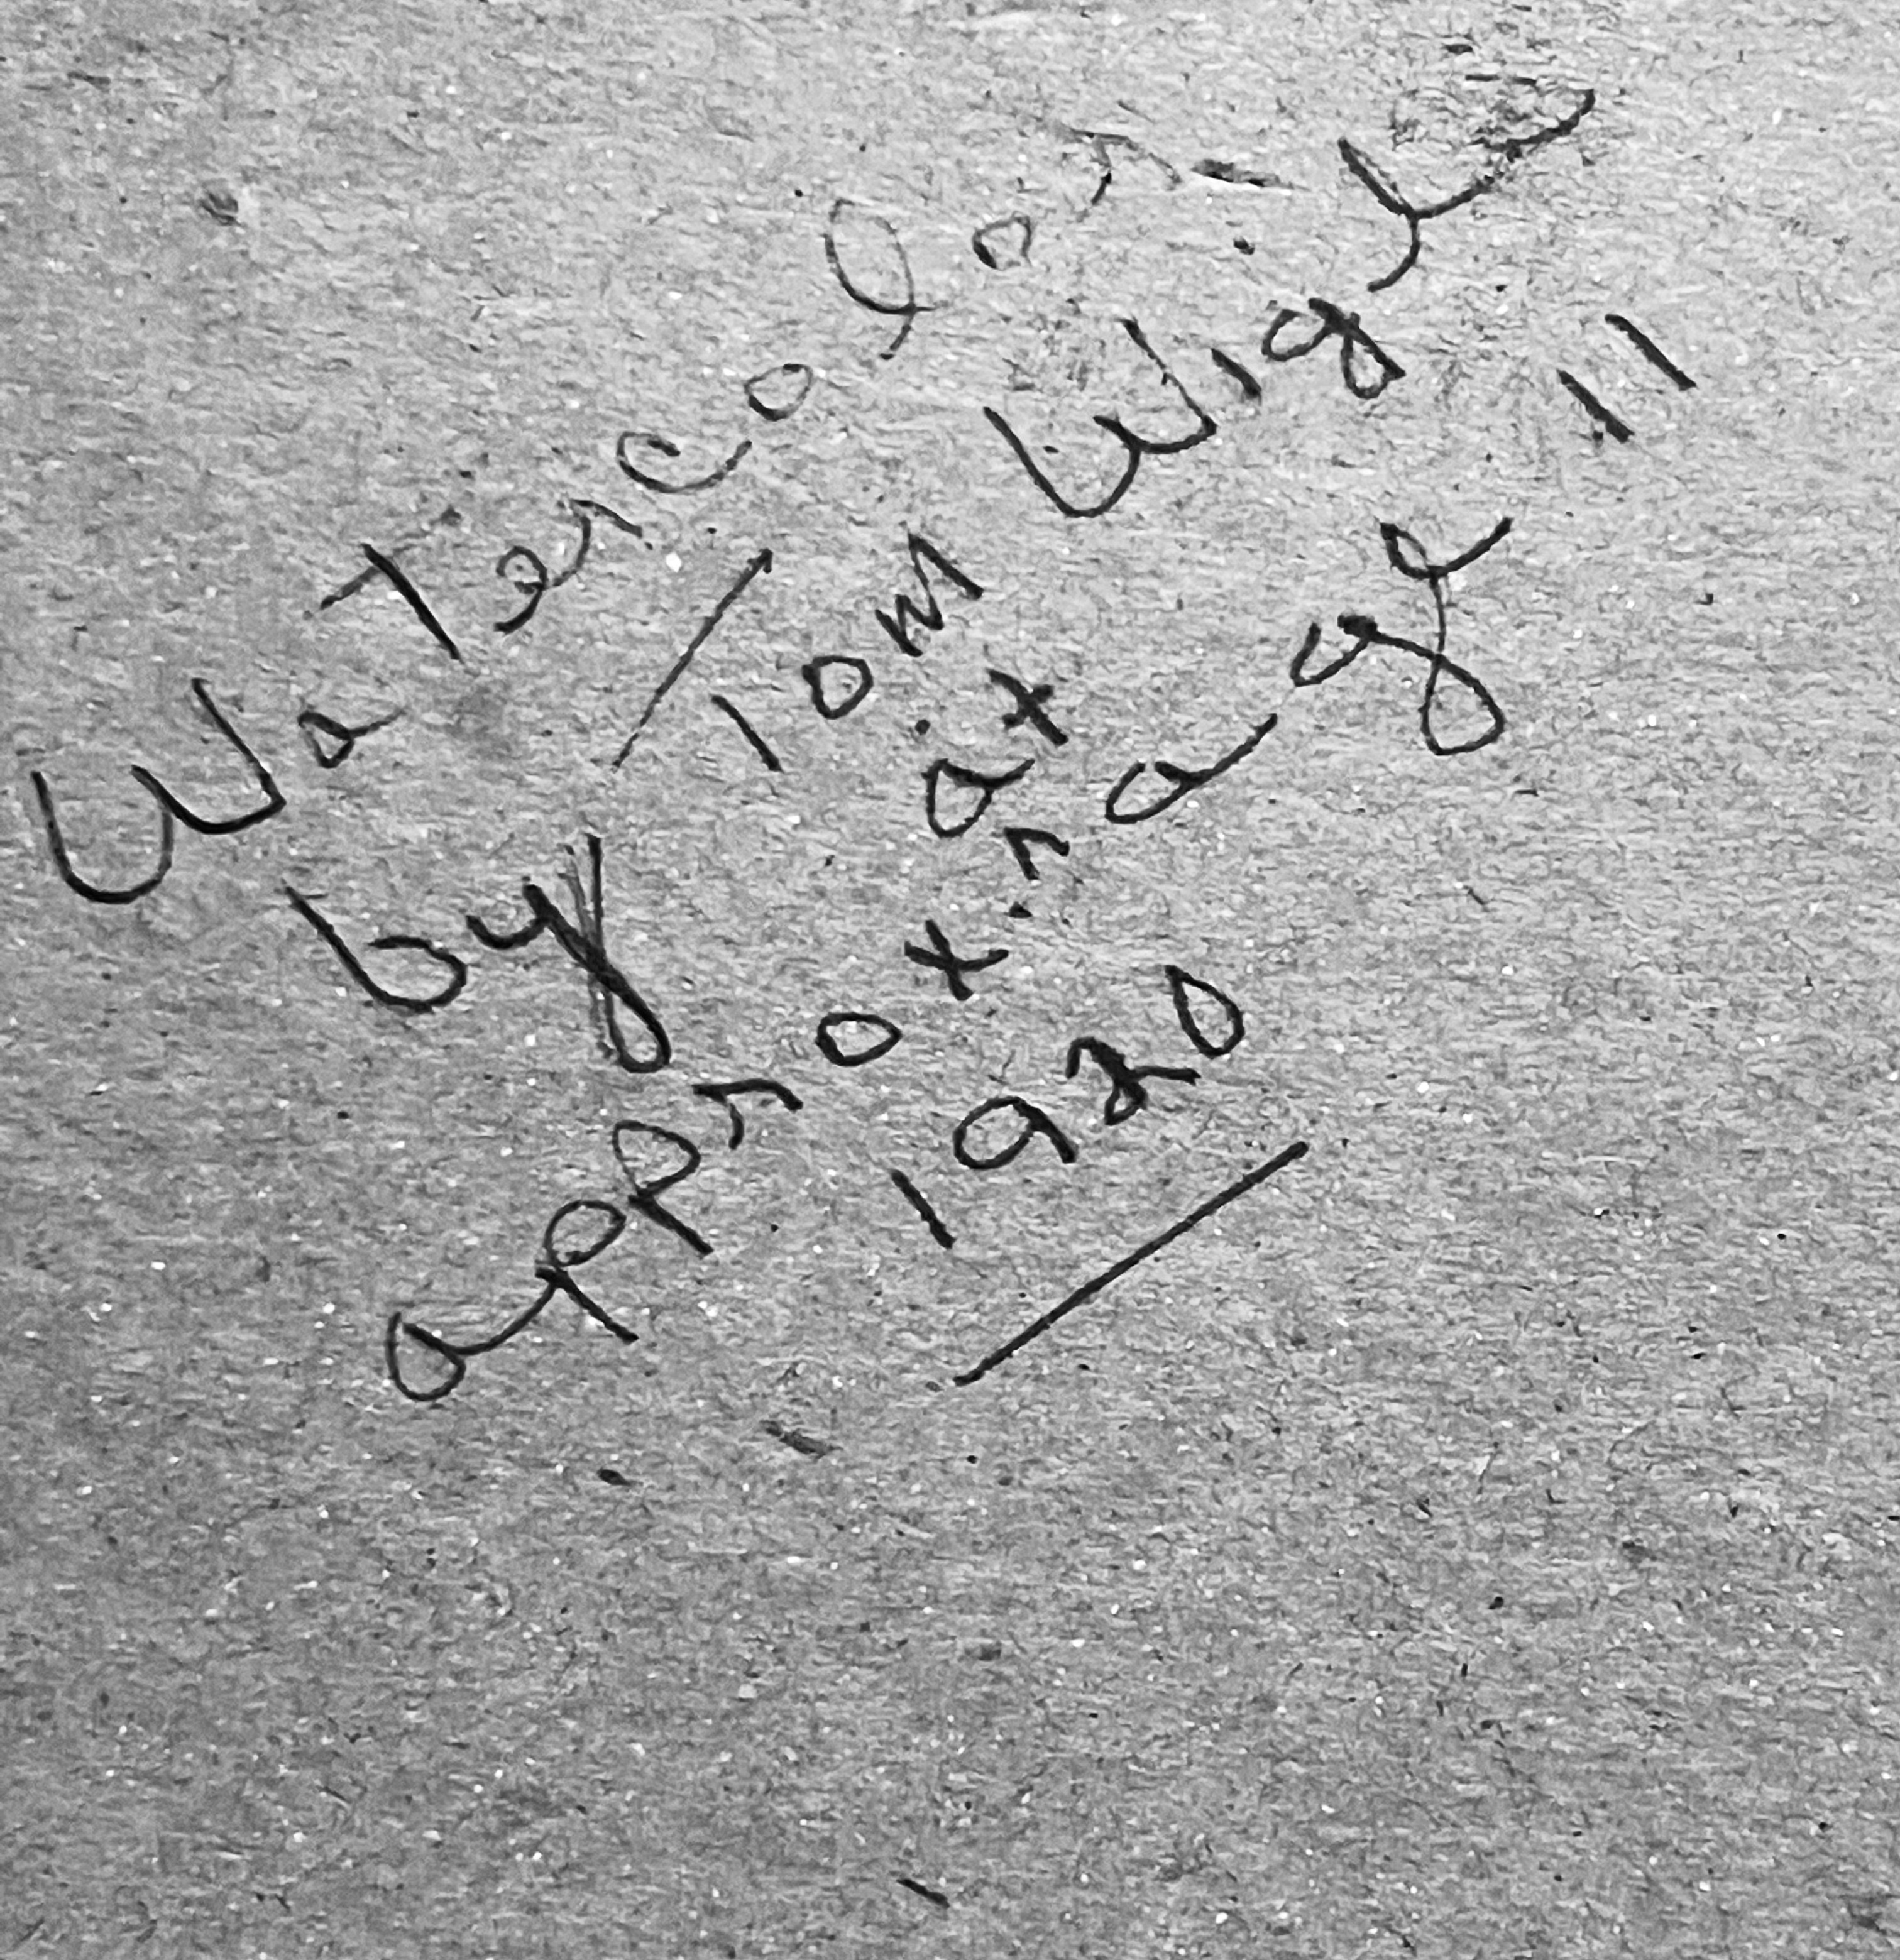 Watercolor
by Tom
approx. at age 11
1920